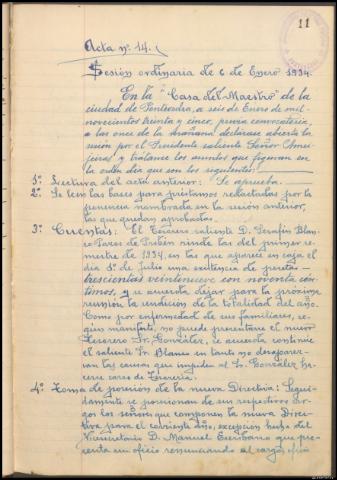 11
Acta nº. 14.
Sesión ordinaria de 6 de Enero 1934.
En la "Casa del Maestro" de la
ciudad de Pontevedra, a seis de Enero de mil
novecientos treinta y cinco, previa convocatoria,
a las once de la mañana declárase abierta la
sesión por el Presidente saliente Señor
y trátanse los asuntos que figuran en
la orden día que son los siguientes:
1º. Lectura del acta anterior: Se aprueba.
2º. Se leen las bases para préstamos redactadas por la
ponencia nombrada en la sesión anterior,
las que quedan aprobadas.
3º. Cuentas: El Tesorero saliente D. Serafín Blan-
co Pazos de Tribén rinde las del primer se-
mestre de 1934, en las que aparece en caja el
día 1º de Julio una existencia de pesetas
trescientas veintinueve con noventa cén-
timos, y se acuerda dejar para la próxima
reunión la rendición de la totalidad del año.
Como por enfermedad de sus familiares, se-
gún manifestó, no puede presentarse el nuevo
Tesorero Sr. González, se acuerda continúe
el saliente Sr. Blanco en tanto no desaparez-
can las causas que impiden al Sr. González ha-
cerse cargo de Tesorería.
4º. Toma de posesión de la nueva Directiva: Segui-
damente se posesionan de sus respectivos car-
gos los señores que componen la nueva Direc-
tiva para el corriente año, excepción hecha del
Vicesecretario D. Manuel Escribano que pre-
senta un oficio renunciando al cargo,